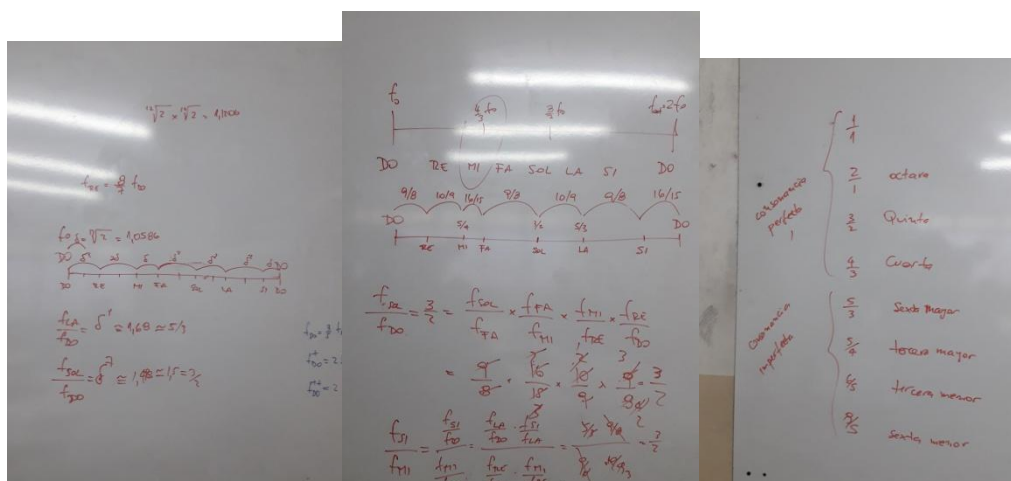 ¹²√2 × ¹²√2 =
f_RE = 9/8 f_DO
= ¹²√2 = 1,0586
DO DO
DO RE MI FA SOL LA SI DO
f_LA/f_DO = ≅ 1,68 ≅ 5/3
f_SOL/f_DO = δ⁷ ≅ ≅ 1,5 = 3/2
f₀ 4/3 f₀ 3/2 f₀ 2f₀
DO RE MI FA SOL LA SI DO
9/8 10/9 16/15 9/8 10/9 9/8 16/15
DO 5/4 1/2 5/3 DO
RE MI FA SOL LA SI
f_SOL/f_DO = 3/2 = f_SOL/f_FA × f_FA/f_MI × f_MI/f_RE × f_RE/f_DO
= 9/8 × 16/15 × 10/9 × 9/8 = 3/2
f_SI/f_MI = f_SI/f_DO = f_LA/f_DO · f_SI/f_LA = 5/3 9/8 = 3/2
consonancia
perfecta
1/1
2/1 octava
3/2 Quinta
4/3 Cuarta
Consonancia
imperfecta
5/3 Sexta mayor
5/4 tercera mayor
6/5 tercera menor
8/5 Sexta menor